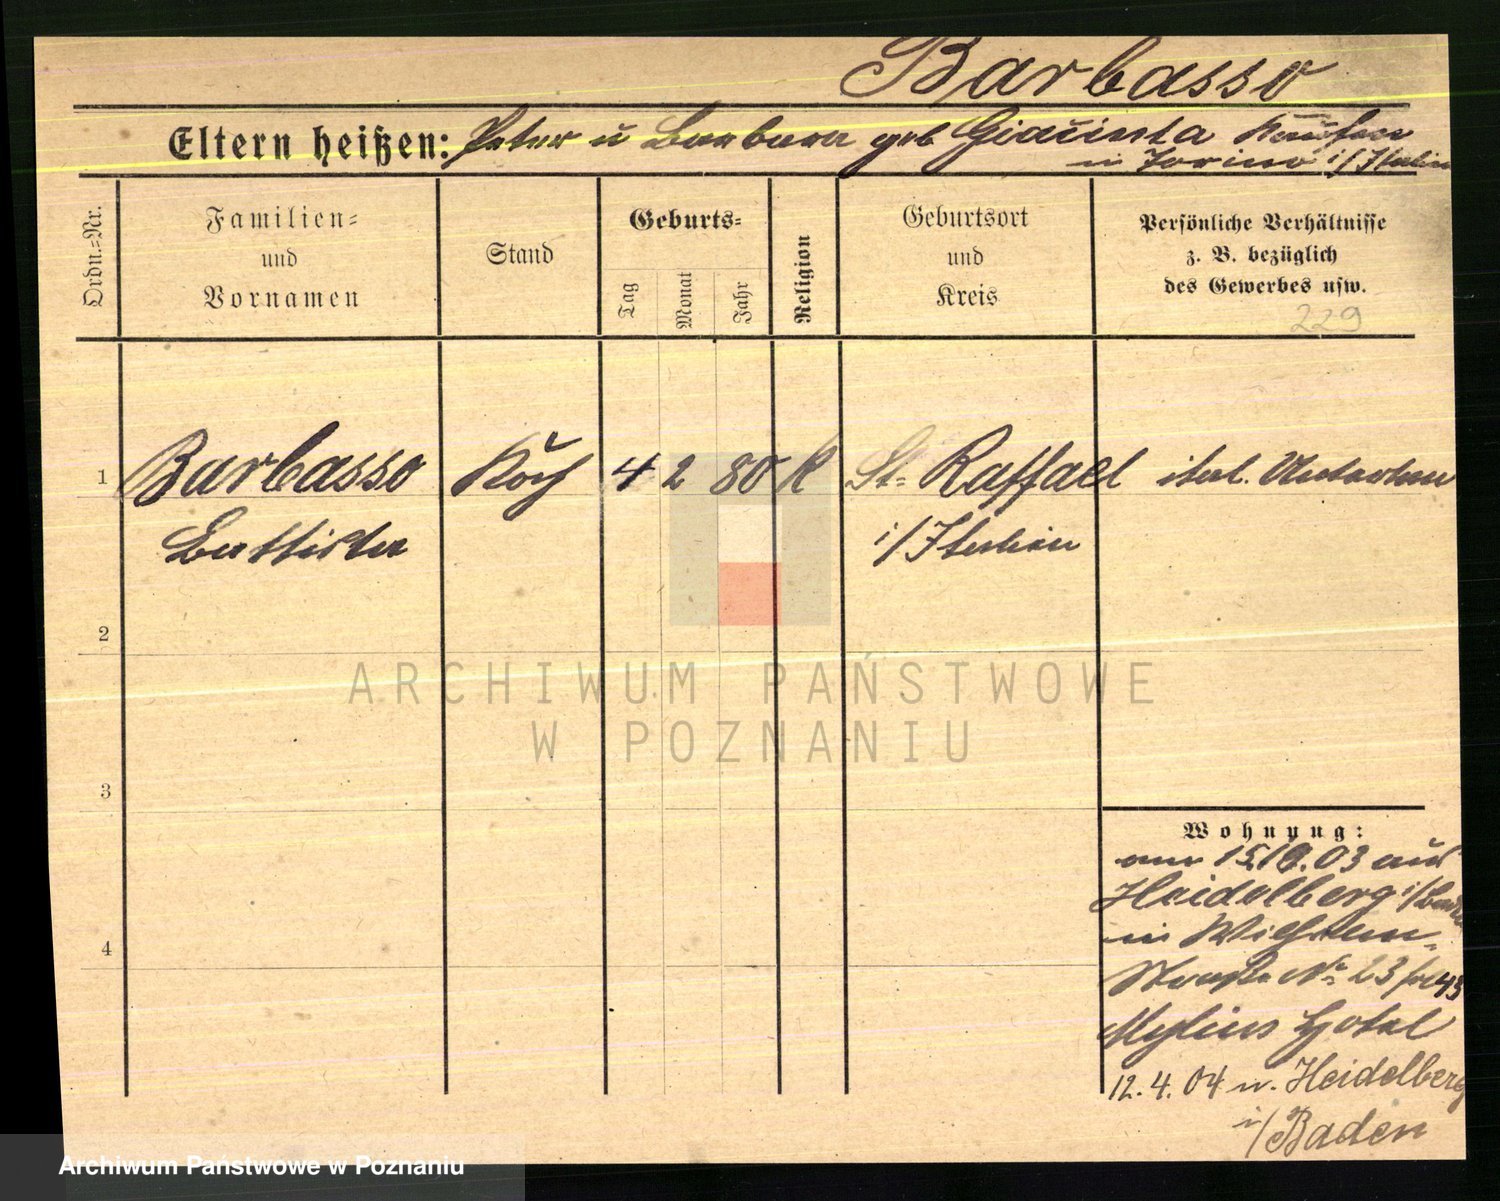 Barbasso
Eltern heißen: Peter u Barbara geb Giacinta Kaufm
in Torino i/Italien
Ordn.=Nr.
Familien=
und
Vornamen
Stand
Geburts=
Tag
Monat
Jahr
Religion
Geburtsort
und
Kreis
Persönliche Verhältnisse
z. B. bezüglich
des Gewerbes usw.
229
1 Barbasso Koch 4 2 80 K St. Raffael ital. Unterthan
Battista i/Italien
2
3
4
ARCHIWUM PAŃSTWOWE
W POZNANIU
Wohnung:
am 15.10.03 aus
Heidelberg i/Baden
in Wilhelm-
straße No 23 fre 43
Mylius Hotel
12.4.04 n. Heidelberg
i/Baden
Archiwum Państwowe w Poznaniu